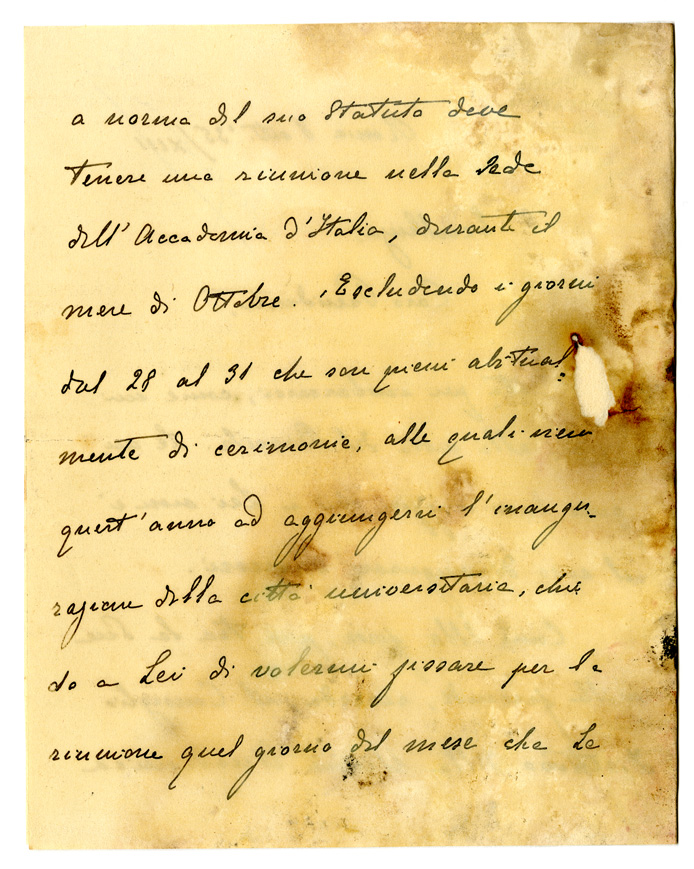 a norma del suo Statuto deve
tenere una riunione nella Sede
dell'Accademia d'Italia, durante il
mese di Ottobre. Escludendo i giorni
dal 28 al 31 che son pieni abitual=
mente di cerimonie, alle quali viene
quest'anno ad aggiungersi l'inaugu-
razione della città universitaria, chie
do a Lei di volermi fissare per la
riunione quel giorno del mese che Le